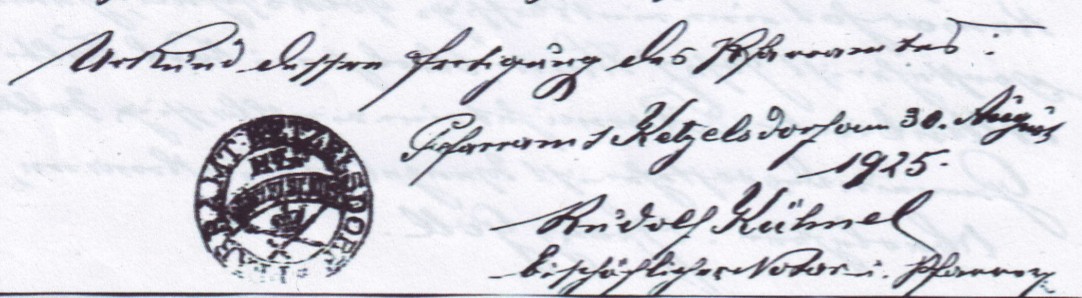 Urkund dessen Fertigung des Pfarramtes:
Pfarramt Ketzelsdorf am 30. August
1925.
Rudolf Kühnel
bischöflicher Notar u. Pfarrer
PFARRAMT KETZELSDORF